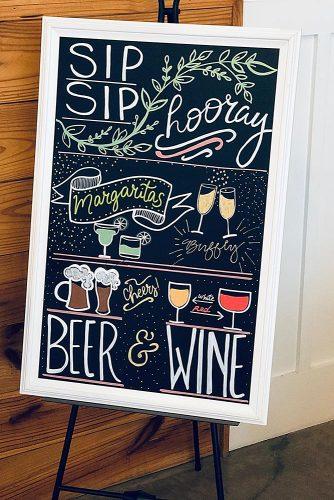 SIP
SIP
hooray
Margaritas
Bubbly
Cheers
white
red
BEER & WINE